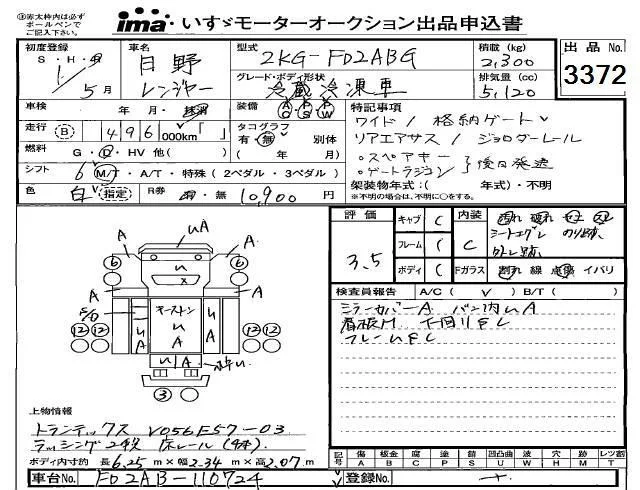 ③赤太枠内は必ず
ボールペンで
ご記入下さい。
ima いすゞモーターオークション出品申込書
初度登録
S・H・R
1/5月
車名
日野
レンジャー
型式
2KG-FD2ABG
積載(kg)
2,300
出品No.
3372
グレード・ボディ形状
冷蔵冷凍車
排気量(cc)
5,120
車検 年・月・抹消
装備 AC PS PW
特記事項
ワイド/格納ゲート
走行 B 496,000km「 」
タコグラフ
有・無 別体
( 年 月)
リアエアサス/ジョロダーレール
燃料 G・D・HV 他( )
。スペアキー
。ゲートラジコン
後日発送
シフト 6 M/T・A/T・特殊(2ペダル・3ペダル)
架装物年式:( 年式)・不明
※不明の場合は、不明に○をする。
色 白 指定 R券 有・無 10,900円
評価
3.5
キャブ C
フレーム C
ボディ C
内装
C
Fガラス
シートエグレ のり跡
外し跡
割れ 線 点傷 イバリ
検査員報告 A/C( ✓ ) B/T( )
ミラーカバーA
フレームEL
キーストン
上物情報
トランテックス V056E57-03
ラッシング2段 床レール(4本)
ボディ内寸約 長6.25m×幅2.34m×高2.07m
記号 傷 板金 腐 塗 錆 凹凸曲 波 穴 跡 欠 レツ割
A B C P S U W H M T L
車台No. FD2AB-110724
登録No.